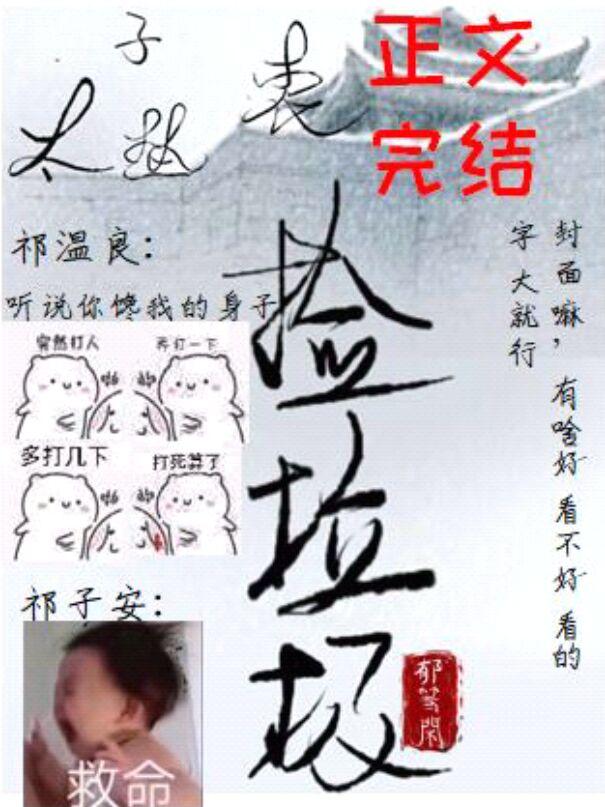 太子热衷
捡垃圾
正文
完结
祁温良：
听说你馋我的身子
突然打人
再打一下
啪 啪
多打几下
打死算了
啪 啪
祁子安：
救命
封面嘛，有啥好看不好看的
字大就行